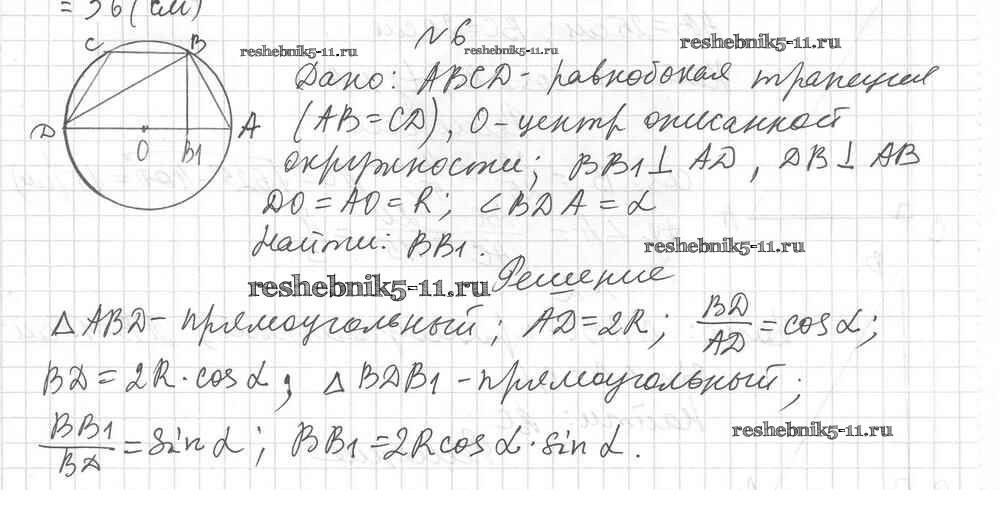 = 36 (см)
N 6
reshebnik5-11.ru reshebnik5-11.ru reshebnik5-11.ru
C B D A O B1
Дано: ABCD - равнобокая трапеция
(AB = CD), O - центр описанной
окружности; BB1 ⊥ AD, DB ⊥ AB
DO = AO = R; ∠BDA = α
Найти: BB1.
reshebnik5-11.ru
Решение
reshebnik5-11.ru
△ ABD - прямоугольный; AD = 2R; BD/AD = cos α;
BD = 2R · cos α; △ BDB1 - прямоугольный;
BB1/BD = sin α; BB1 = 2R cos α · sin α.
reshebnik5-11.ru